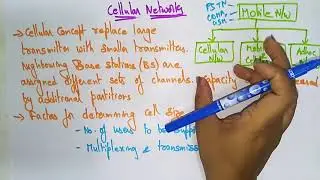 Cellular Networks
PSTN
comm.
Mobile N/w
→ Cellular Concept replace large
transmitter with smaller transmitters.
Neighbouring Base stations (BS) are
assigned different sets of channels. Capacity
by additional partitions
Cellular
N/w
Adhoc
→ Factors for determining cell size
- No. of users to be supp
- Multiplexing & transmiss